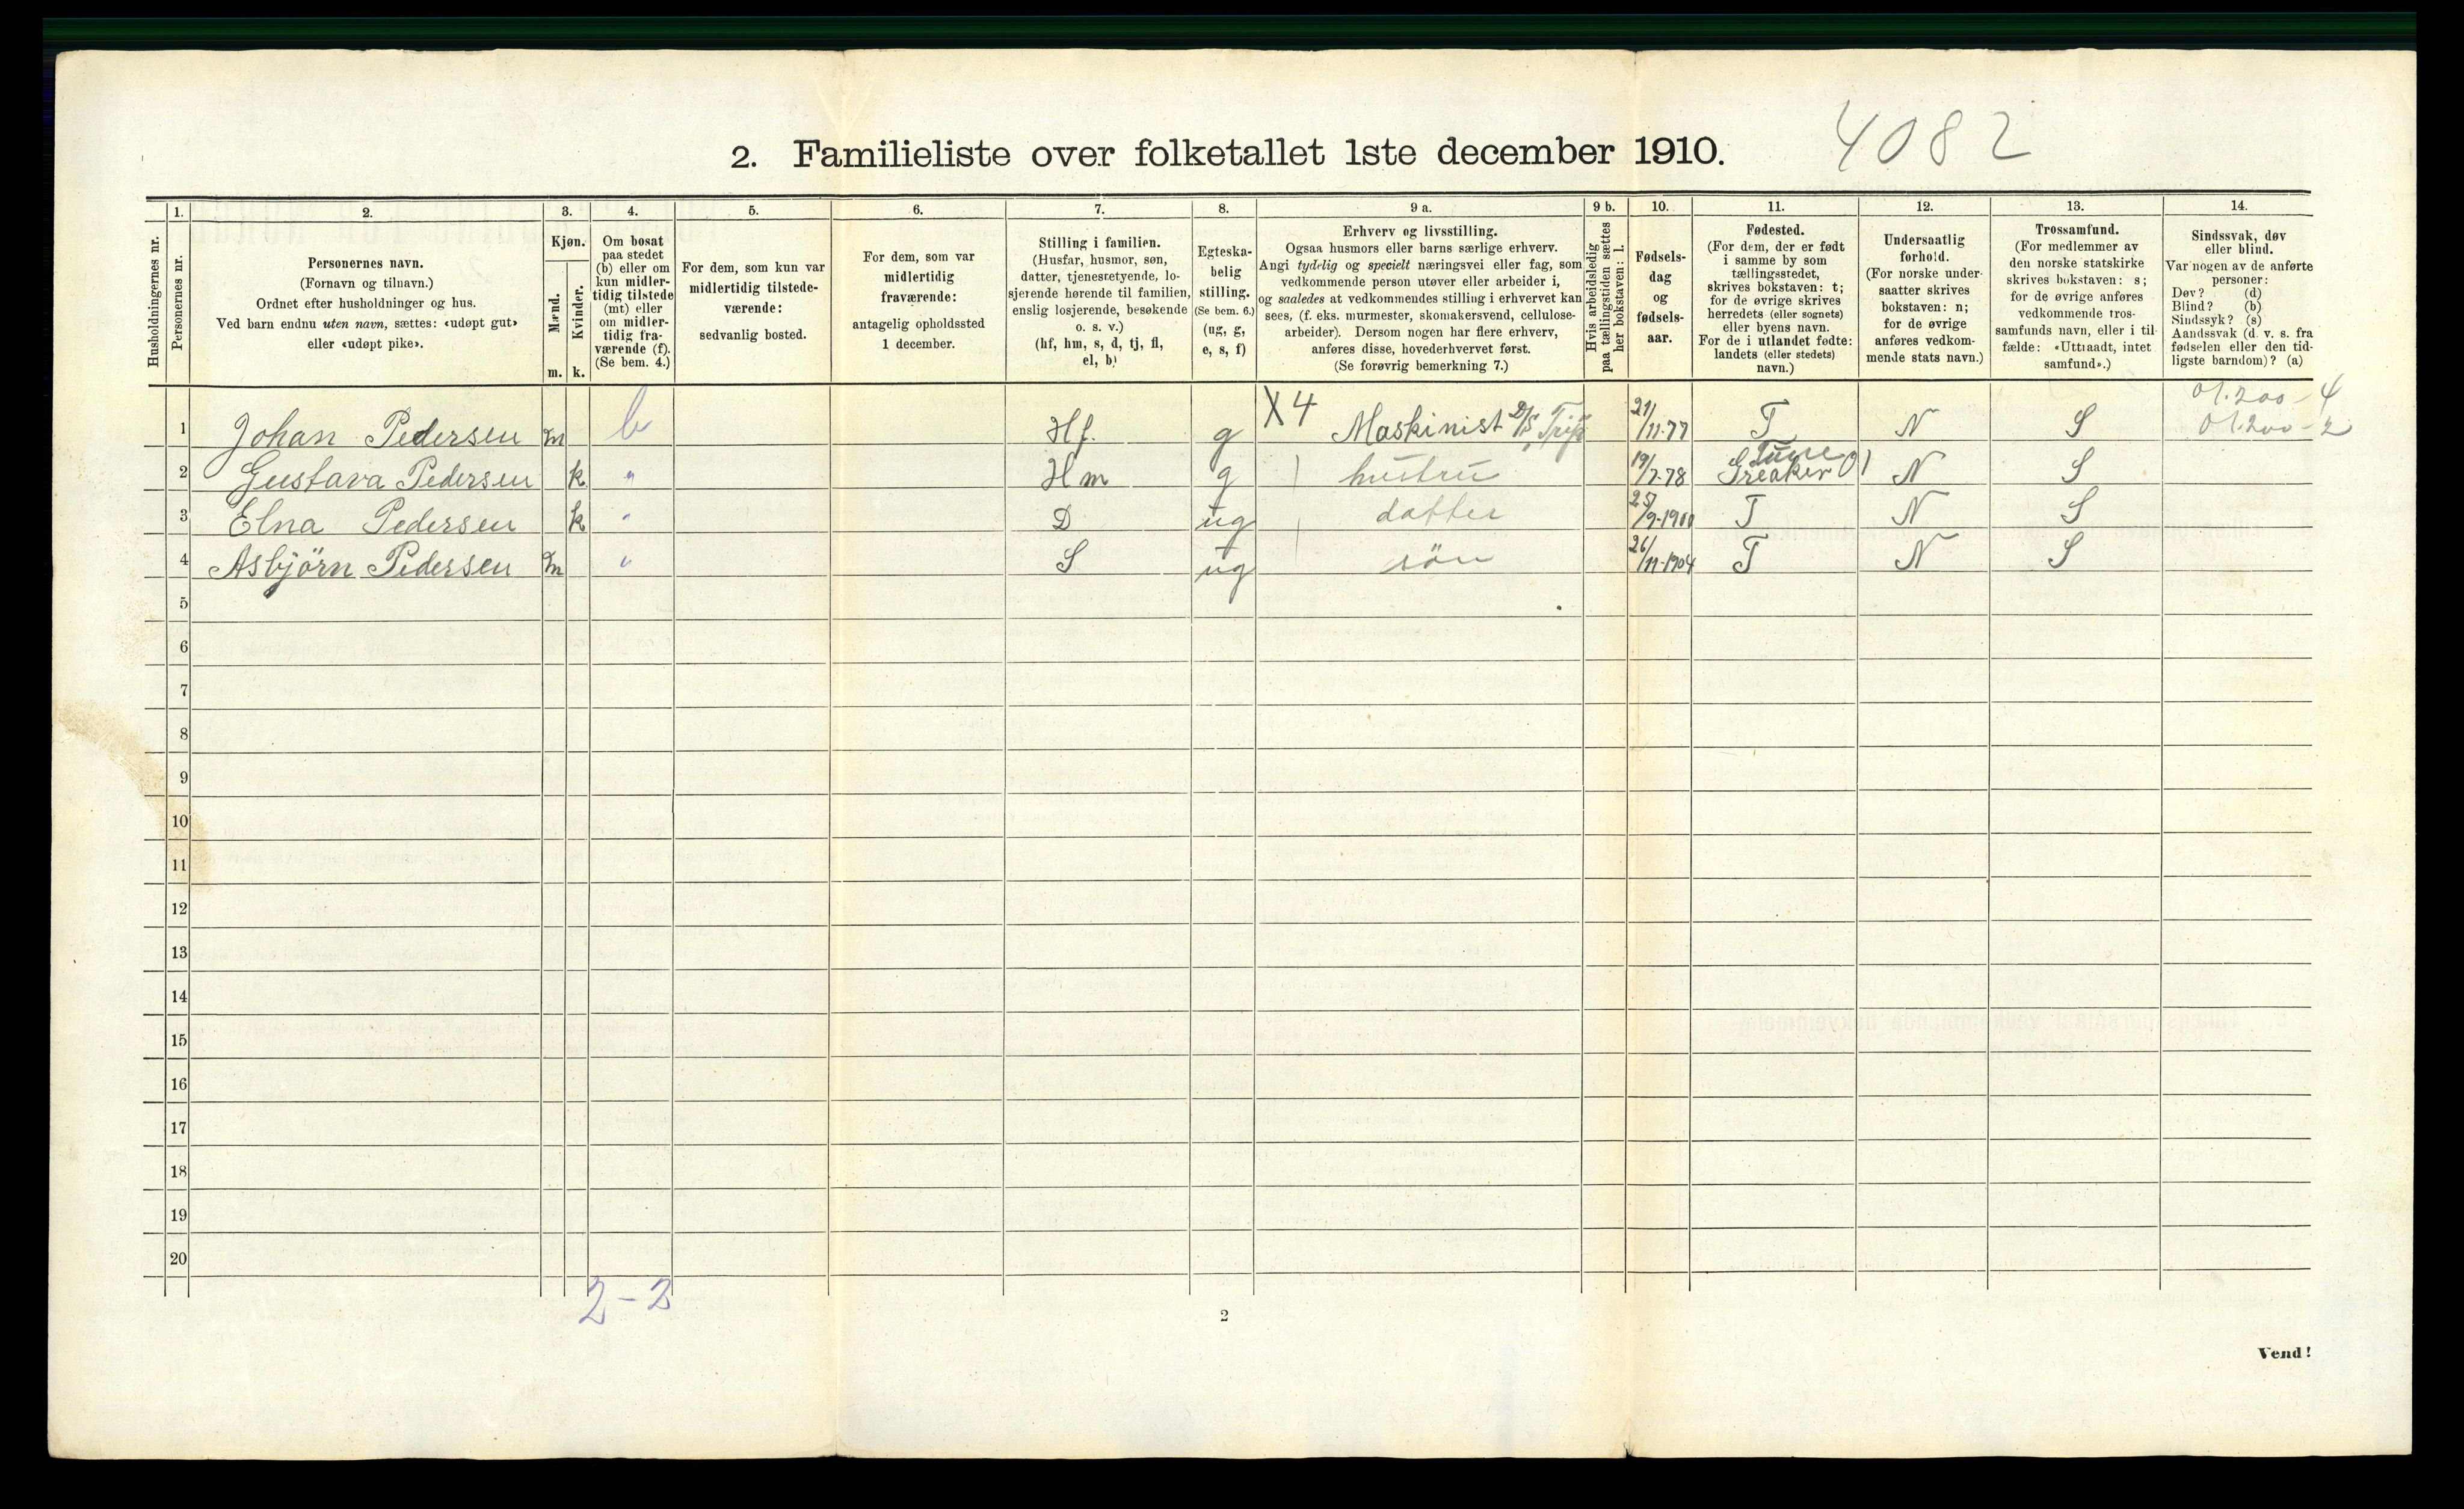 2. Familieliste over folketallet 1ste december 1910. 4082
Husholdningernes nr.
1. Personernes nr.
2. Personernes navn.
(Fornavn og tilnavn.)
Ordnet efter husholdninger og hus.
Ved barn endnu uten navn, sættes: «udøpt gut»
eller «udøpt pike».
3. Kjøn.
Mænd. m.
Kvinder. k.
4. Om bosat
paa stedet
(b) eller om
kun midler-
tidig tilstede
(mt) eller
om midler-
tidig fra-
værende (f).
(Se bem. 4.)
5. For dem, som kun var
midlertidig tilstede-
værende:
sedvanlig bosted.
6. For dem, som var
midlertidig
fraværende:
antagelig opholdssted
1 december.
7. Stilling i familien.
(Husfar, husmor, søn,
datter, tjenestetyende, lo-
sjerende hørende til familien,
enslig losjerende, besøkende
o. s. v.)
(hf, hm, s, d, tj, fl,
el, b)
8. Egteska-
belig
stilling.
(Se bem. 6.)
(ug, g,
e, s, f)
9 a. Erhverv og livsstilling.
Ogsaa husmors eller barns særlige erhverv.
Angi tydelig og specielt næringsvei eller fag, som
vedkommende person utøver eller arbeider i,
og saaledes at vedkommendes stilling i erhvervet kan
sees, (f. eks. murmester, skomakersvend, cellulose-
arbeider). Dersom nogen har flere erhverv,
anføres disse, hovederhvervet først.
(Se forøvrig bemerkning 7.)
9 b. Hvis arbeidsledig
paa tællingstiden sættes
her bokstaven: l.
10. Fødsels-
dag
og
fødsels-
aar.
11. Fødested.
(For dem, der er født
i samme by som
tællingsstedet,
skrives bokstaven: t;
for de øvrige skrives
herredets (eller sognets)
eller byens navn.
For de i utlandet fødte:
landets (eller stedets)
navn.)
12. Undersaatlig
forhold.
(For norske under-
saatter skrives
bokstaven: n;
for de øvrige
anføres vedkom-
mende stats navn.)
13. Trossamfund.
(For medlemmer av
den norske statskirke
skrives bokstaven: s;
for de øvrige anføres
vedkommende tros-
samfunds navn, eller i til-
fælde: «Uttraadt, intet
samfund».)
14. Sindssvak, døv
eller blind.
Var nogen av de anførte
personer:
Døv? (d)
Blind? (b)
Sindssyk? (s)
Aandssvak (d. v. s. fra
fødselen eller den tid-
ligste barndom)? (a)
01.200-4
1 Johan Pedersen m b Hf. g X4 Maskinist D/S 21/11-77 T N S 01.200-2
2 Gustava Pedersen k " Hm g hustru 19/7-78 Greaker Tune 01 N S
3 Elna Pedersen k " D ug datter 25/9-1900 T N S
4 Asbjörn Pedersen m " S ug sön 26/11-1904 T N S
5
6
7
8
9
10
11
12
13
14
15
16
17
18
19
20
2-2
2
Vend!